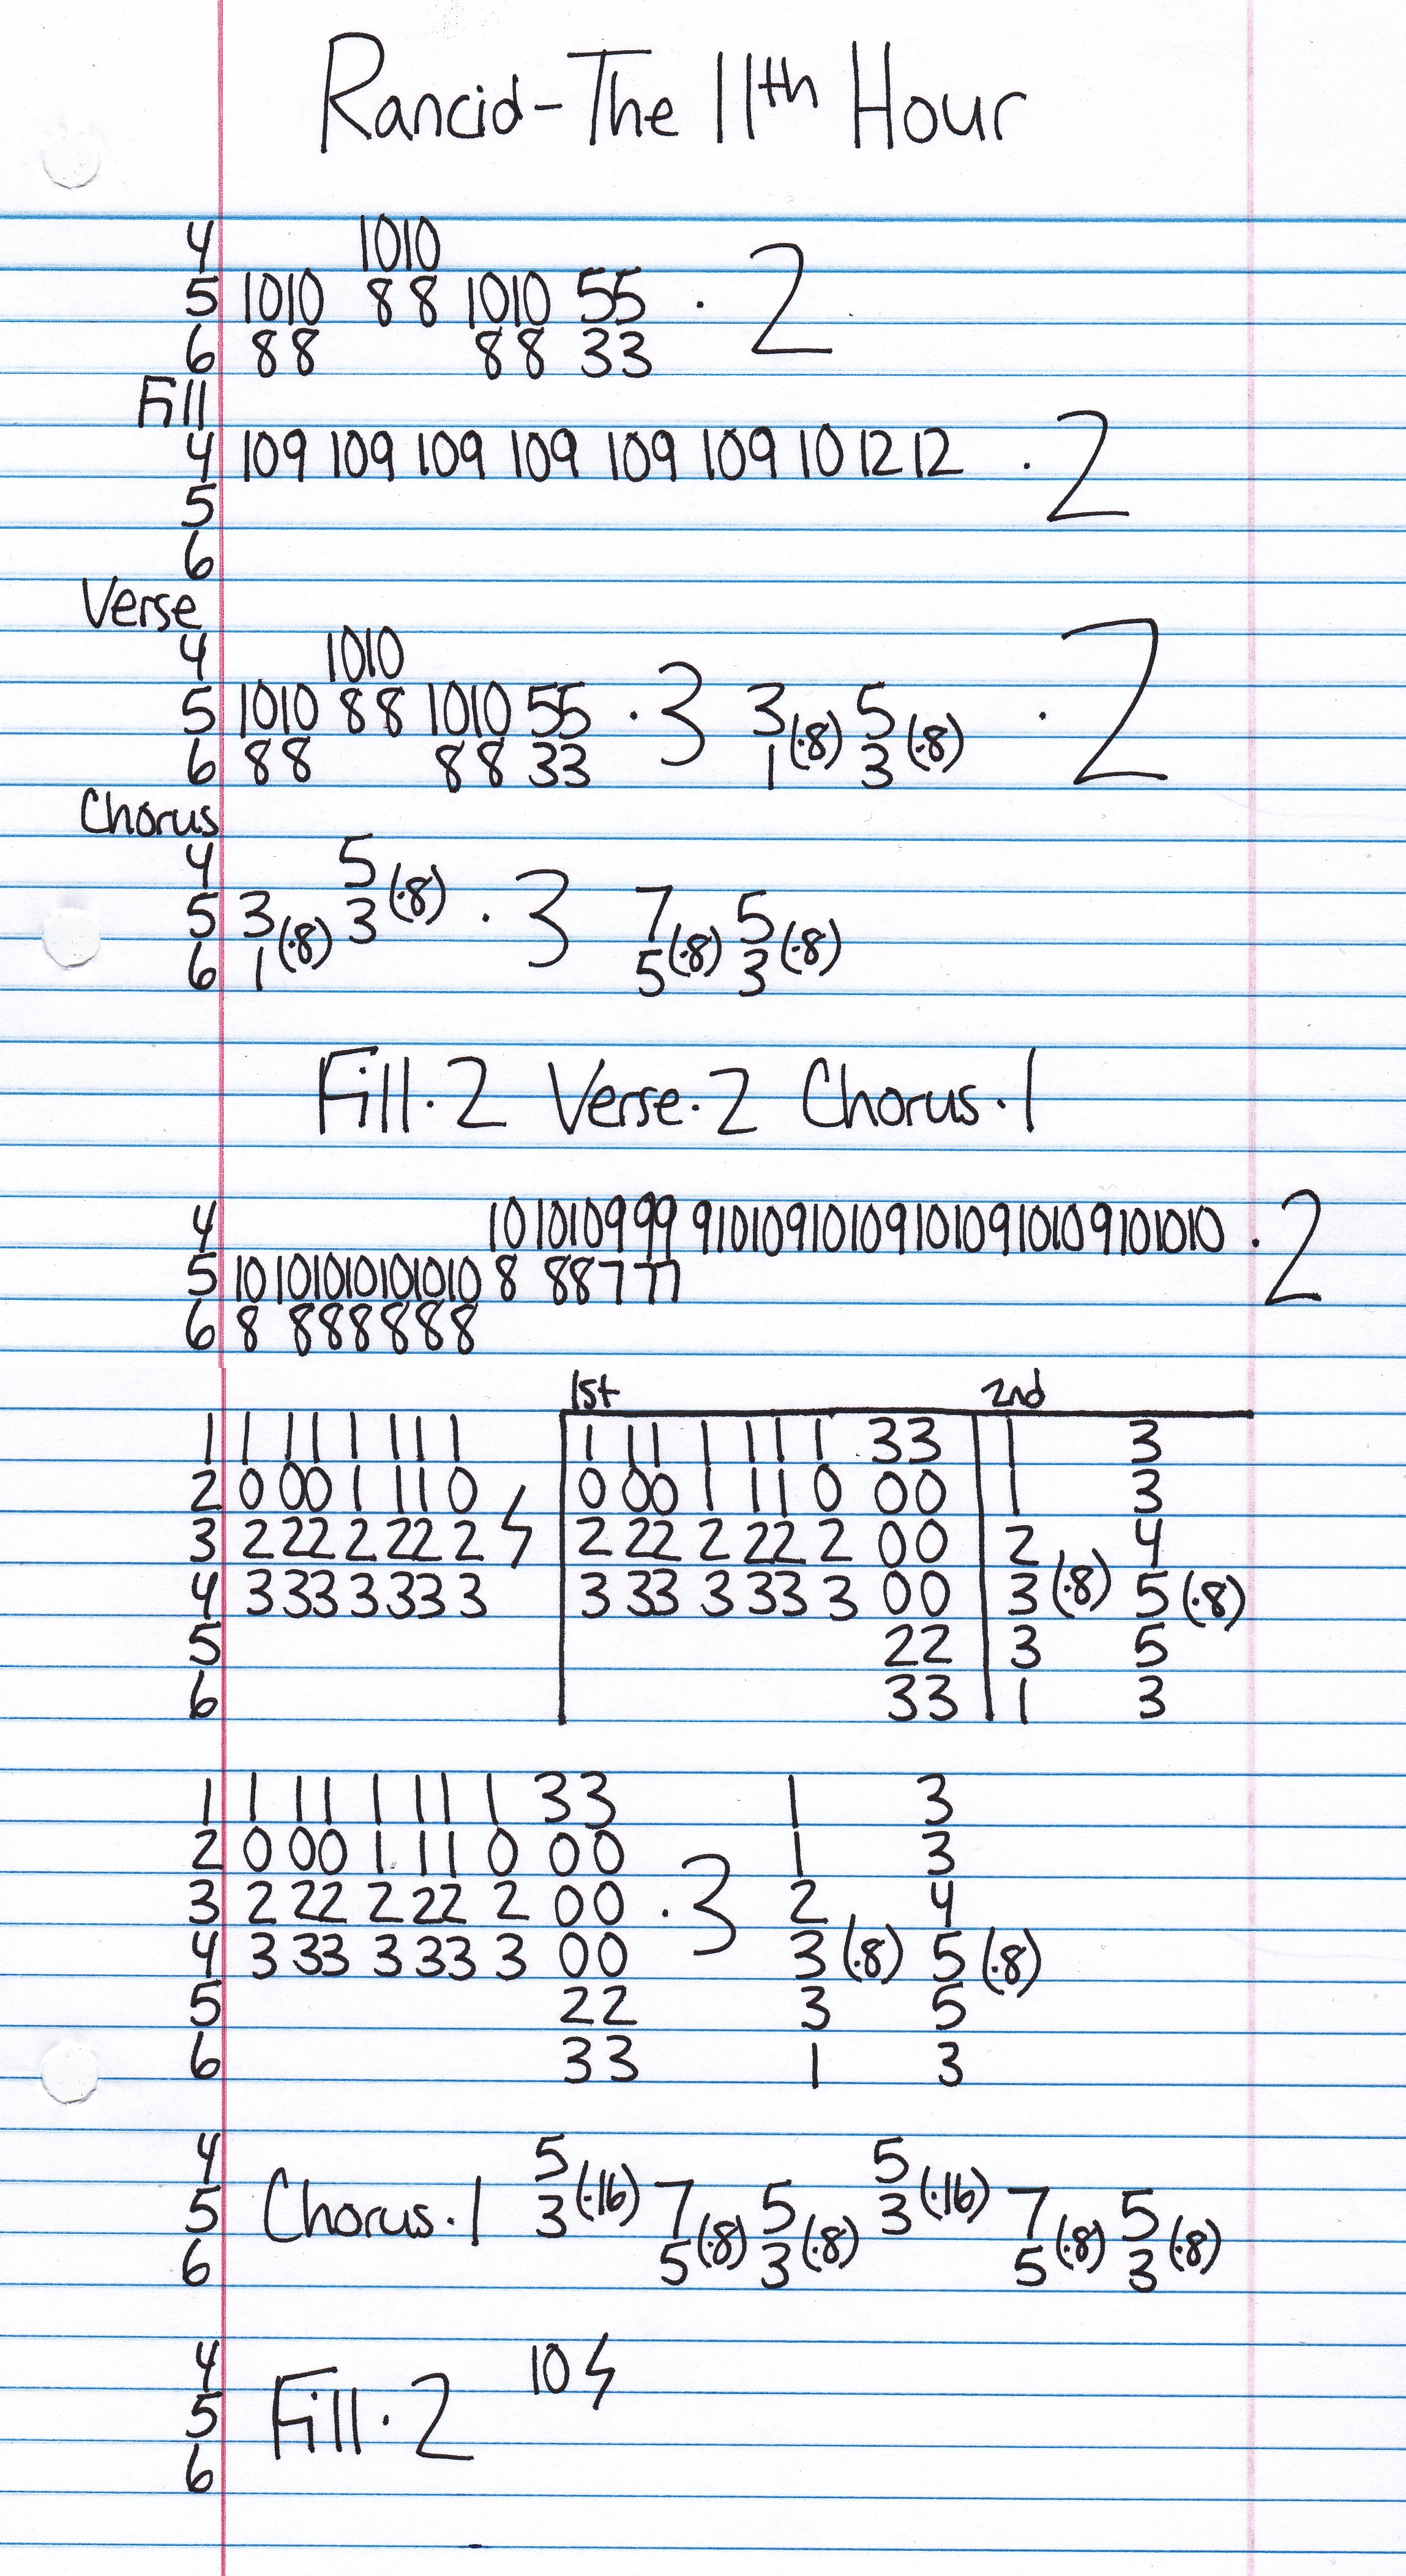 Rancid-The 11th Hour
4 1010
5 1010 88 1010 55 · 2
6 88 88 33
Fill
4 109 109 109 109 109 109 10 12 12 · 2
5
6
Verse
4 1010
5 1010 88 1010 55 · 3 3 (·8) 5 (·8) · 2
6 88 88 33 1 3
Chorus
4 5
5 3 (·8) 3 (·8) · 3 7 (·8) 5 (·8)
6 1 5 3
Fill·2 Verse·2 Chorus·1
4 10 1010999 910109101091010910109101010 · 2
5 10 101010101010 8 88777
6 8 888888
1st 2nd
1 1 11 1 11 1 1 11 1 11 1 33 1 3
2 0 00 1 11 0 0 00 1 11 0 00 1 3
3 2 22 2 22 2 2 22 2 22 2 00 2 4
4 3 33 3 33 3 3 33 3 33 3 00 3 (·8) 5 (·8)
5 22 3 5
6 33 1 3
1 1 11 1 11 1 33 1 3
2 0 00 1 11 0 00 1 3
3 2 22 2 22 2 00 · 3 2 4
4 3 33 3 33 3 00 3 (·8) 5 (·8)
5 22 3 5
6 33 1 3
4 5 5
5 Chorus·1 3 (·16) 7 (·8) 5 (·8) 3 (·16) 7 (·8) 5 (·8)
6 5 3 5 3
4 10
5 Fill·2
6